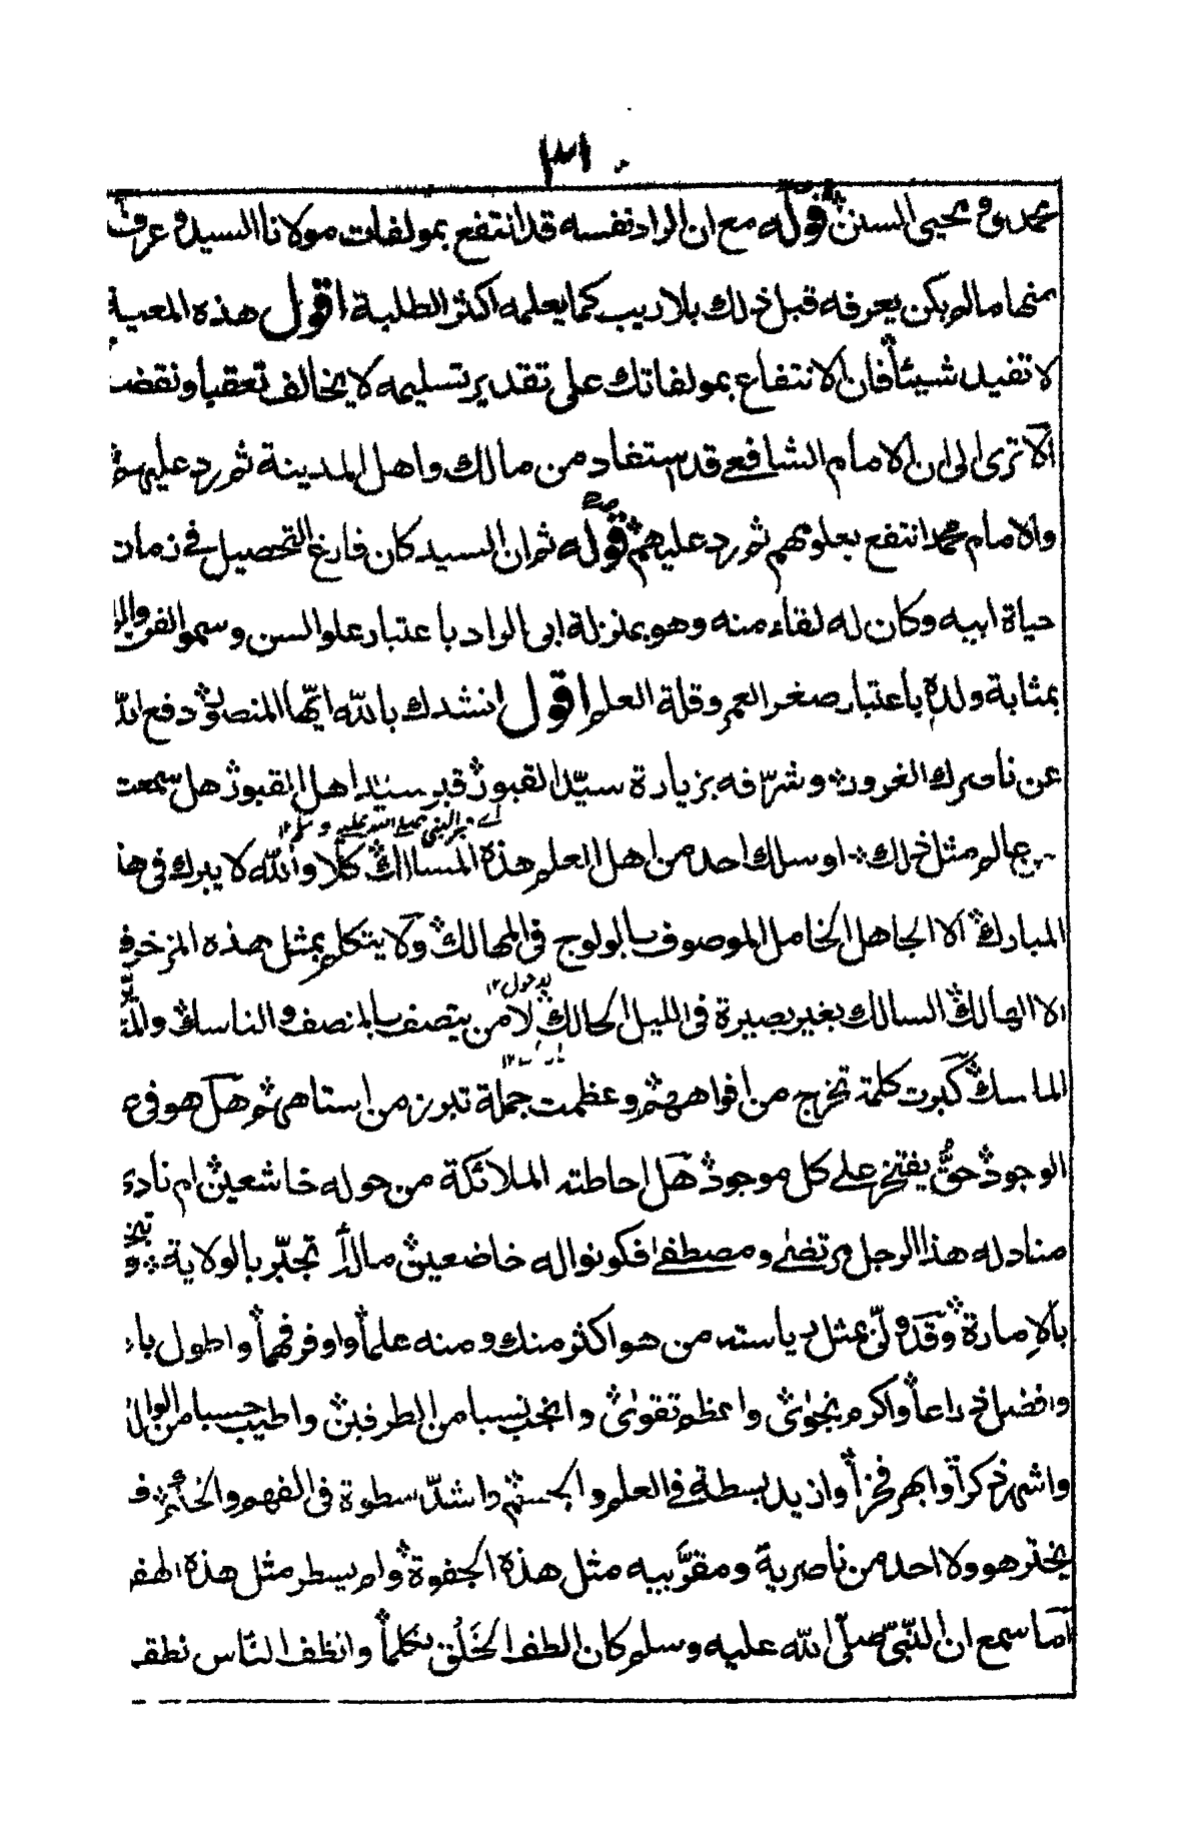 محمد و يحيى السنن قوله مع ان الراد نفسه قد انتفع بمولفات مولانا السيد وعرف
منها ما لم يكن يعرفه قبل ذلك بلا ريب كما يعلمه اكثر الطلبة اقول هذه المعية
لا تفيد شيئا فان الانتفاع بمولفاتك على تقدير تسليمه لا يخالف تعقبا ونقضا
الا ترى الى ان الامام الشافعي قد استفاد من مالك واهل المدينة ثم رد عليهم
والامام محمد انتفع بعلومهم ثم رد عليهم قوله ثم ان السيد كان فارغ التحصيل في زمان
حياة ابيه وكان له لقاء منه وهو بمنزلة ابى الراد باعتبار علو السن وسمو الفن
بمثابة ولده باعتبار صغر العمر وقلة العلم اقول انشدك بالله ايها المنصور دفع الله
عن ناصرك الغرور وشرّفه بزيارة سيّد القبور قبر سيّد اهل القبور هل سمعت
اے قبر النبى صلى الله عليه وسلم ١٢
عالم مثل ذلك او سلك احد من اهل العلم هذه المسالك كلا والله لا يبرك فى
المبارك الا الجاهل الخامل الموصوف بالولوج فى المهالك ولا يتكلم بمثل هذه المزخرف
دخول ١٢
الا الهالك السالك بغير بصيرة فى الليل الحالك لا من يتصف بالمنصف والناسك
الماسك كبرت كلمة تخرج من افواههم وعظمت جملة تبرز من استاههم هل هو فى
الوجود حقٌّ يفتخر على كل موجود هل احاطته الملائكة من حوله خاشعين ام نادى
مناد له هذا الرجل مرتضى ومصطفى فكونوا له خاضعين ما له تجبّر بالولاية
بالامارة وقد ولّى بمثل رياسته من هو اكثر منك ومنه علما واوفر فهما واطول باعا
وافضل ذراعا واكرم نجوى واعظم تقوى وانجب نسبا من الطرفين واطيب حسبا من
واشهر ذكرا وابهر فخرا وازيد بسطة في العلم والجسم واشدّ سطوة فى الفهم
يختر هو ولا احد من ناصريه ومقرّبيه مثل هذه الجفوة ولم يسطر مثل هذه
اما سمع ان النبّى صلّى الله عليه وسلم كان الطف الخَلْق تكلما وانظف الناس نطقا